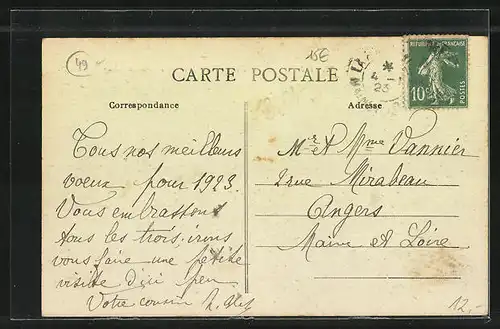 49
15€
CARTE POSTALE
4-1
23
REPUBLIQUE FRANCAISE
10c
POSTES
Correspondance
Adresse
Tous nos meilleurs
voeux pour 1923.
Vous embrassons
tous les trois, irons
vous faire une petite
visite d'ici peu
Votre cousin
Mr et Mme Vannier
2 rue Mirabeau
Angers
Maine et Loire
12,-